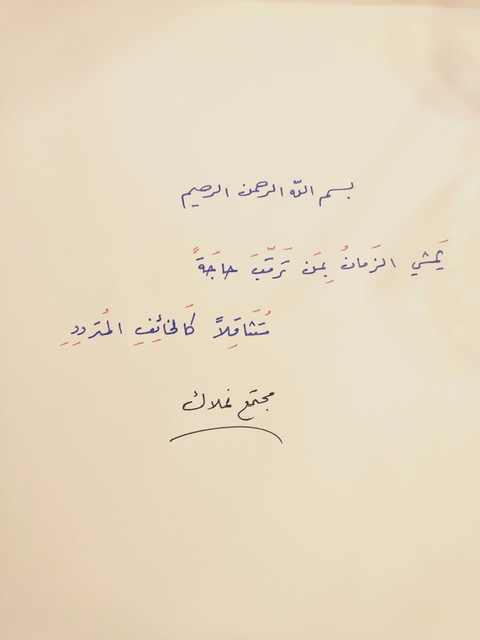 بسم الله الرحمن الرحيم
يَمْشي الزَمانُ بِمَن تَرَقَّبَ حاجَةً
مُتَثاقِلاً كَالخائِفِ المُتَردِدِ
مجتمع نملاك